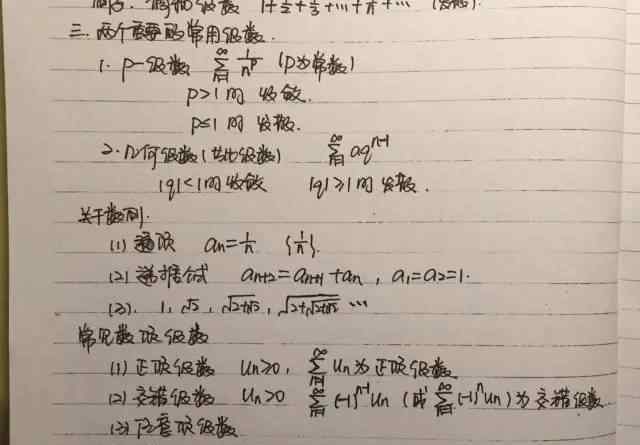 调和级数 1+1/2+1/3+…+1/n+… (发散).
三. 两个重要的常用级数.
1. p-级数 ∑_{n=1}^{∞} 1/n^p (p为常数)
p>1时 收敛.
p≤1时 发散.
2. 几何级数(等比级数) ∑_{n=1}^{∞} aq^{n-1}
|q|<1时收敛 |q|≥1时 发散.
关于数列.
(1) 通项 an=1/n {1/n}.
(2) 递推公式 a_{n+2}=a_{n+1}+a_n, a_1=a_2=1.
(3). 1, √2, √(2+√2), √(2+√(2+√2)) …
常见数项级数
(1) 正项级数 Un≥0, ∑_{n=1}^{∞} Un为正项级数
(2) 交错级数 Un>0 ∑_{n=1}^{∞} (-1)^{n-1}Un (或∑_{n=1}^{∞} (-1)^n Un)为交错级数
(3) 任意项级数